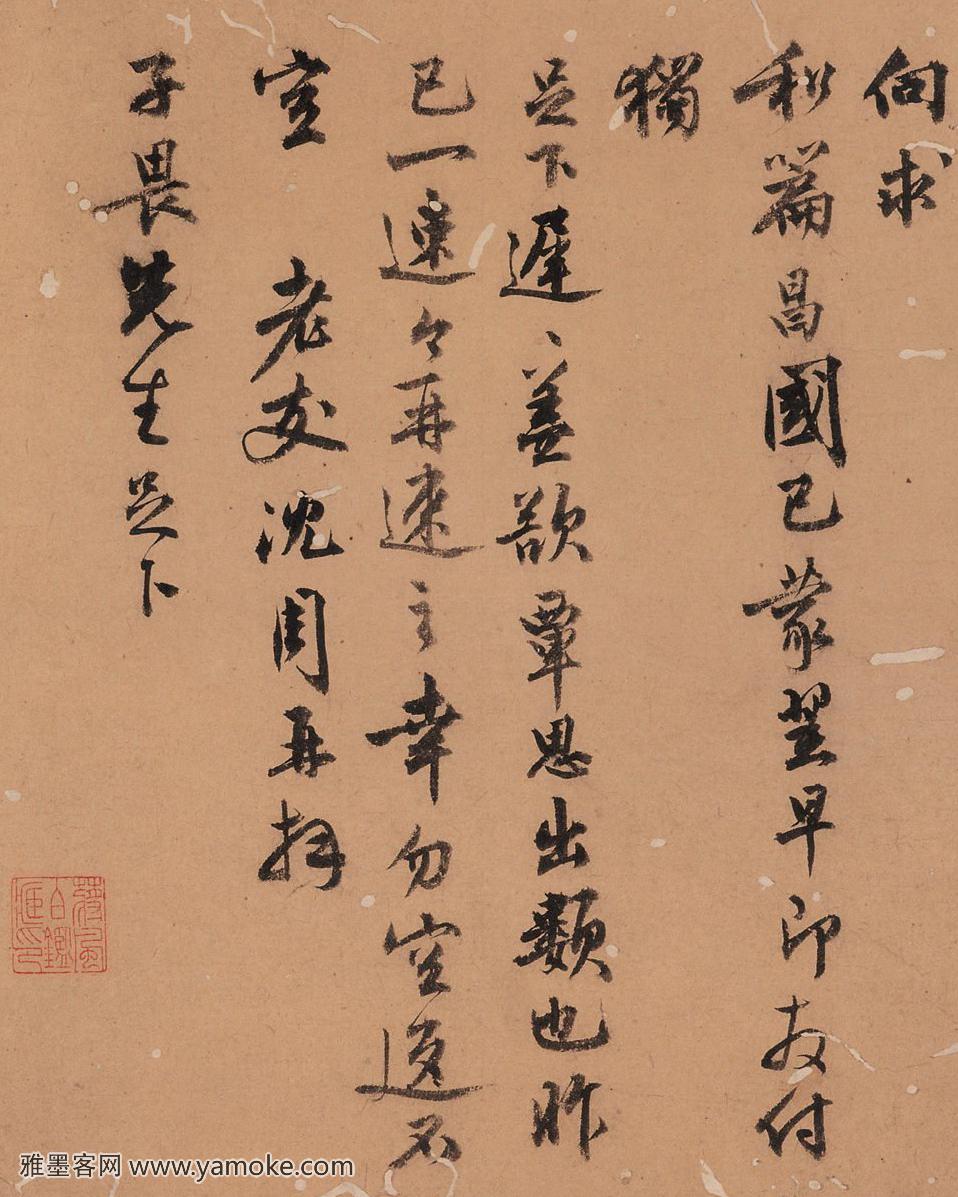 向求
和篇昌國已蒙翌早即友付
獨
足下遲〻蓋欲覃思出類也昨
已一速今再速之幸勿空返不
宣　老友沈周再拜
子畏先生足下
雅墨客网 www.yamoke.com